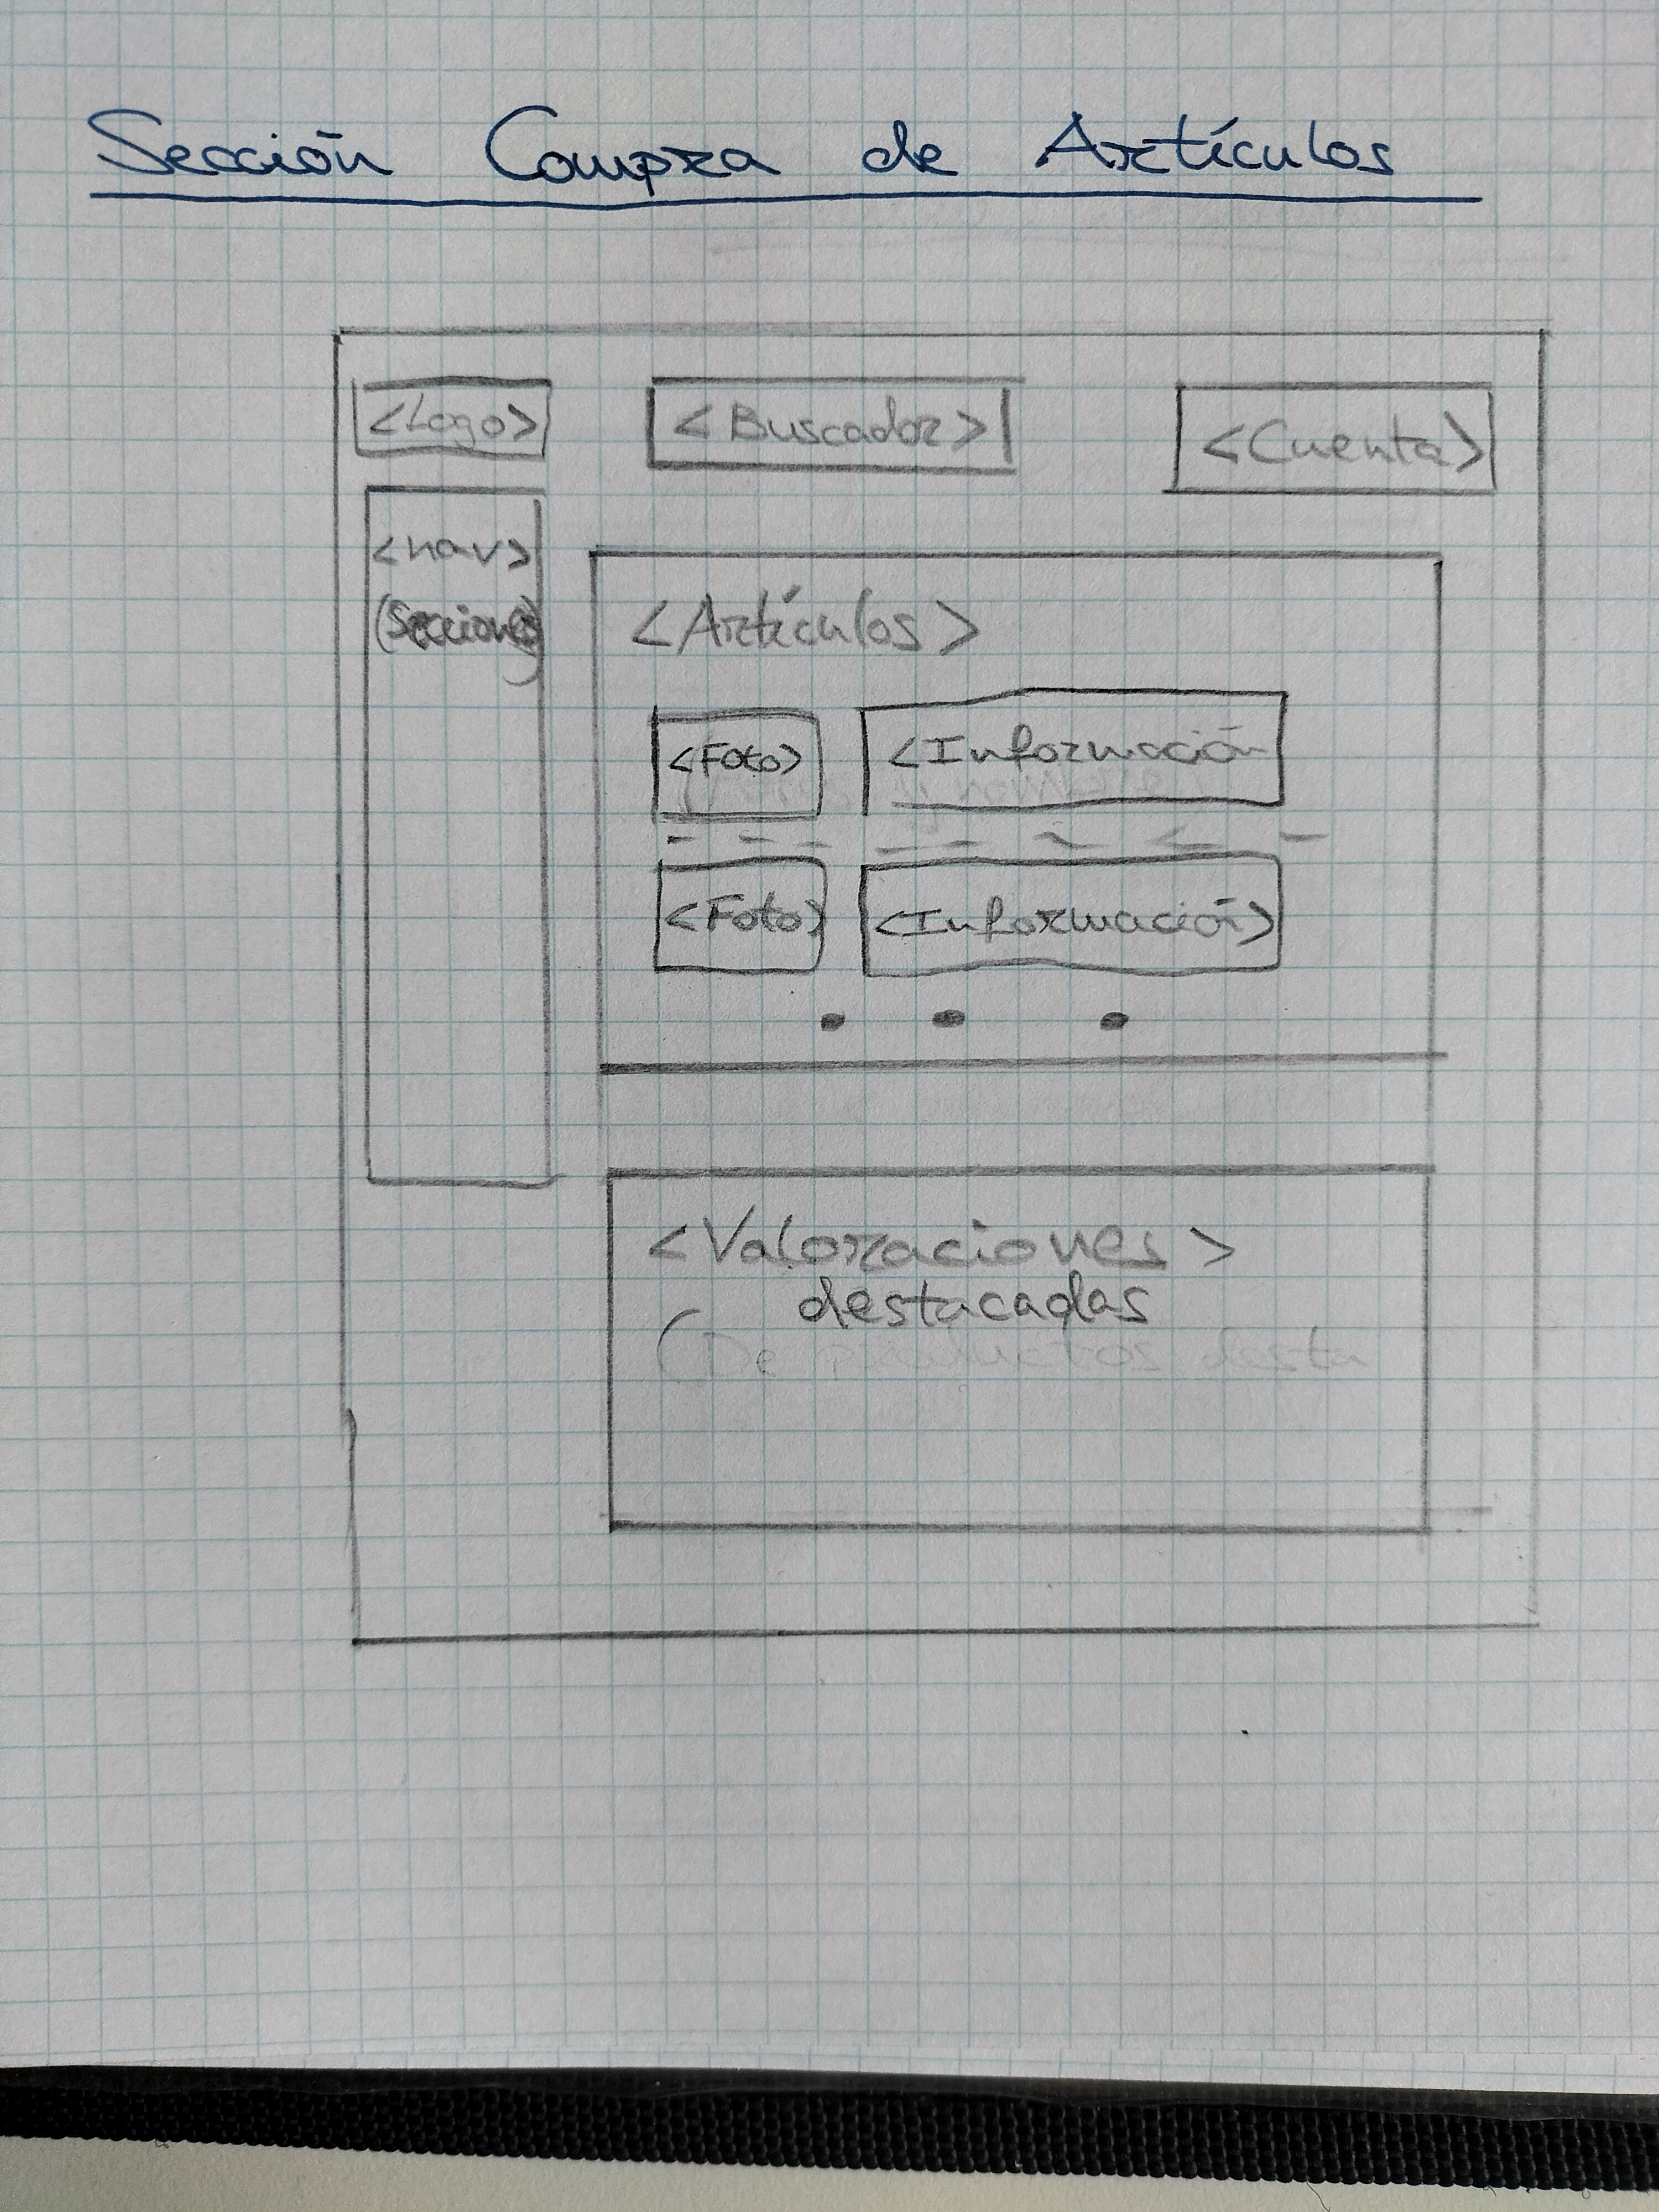 Sección Compra de Artículos
<Logo>
<Buscador>
<Cuenta>
<nav>
(Secciones)
<Artículos>
<Foto>
<Información
<Foto>
<Información>
<Valoraciones>
destacadas
(De productos desta